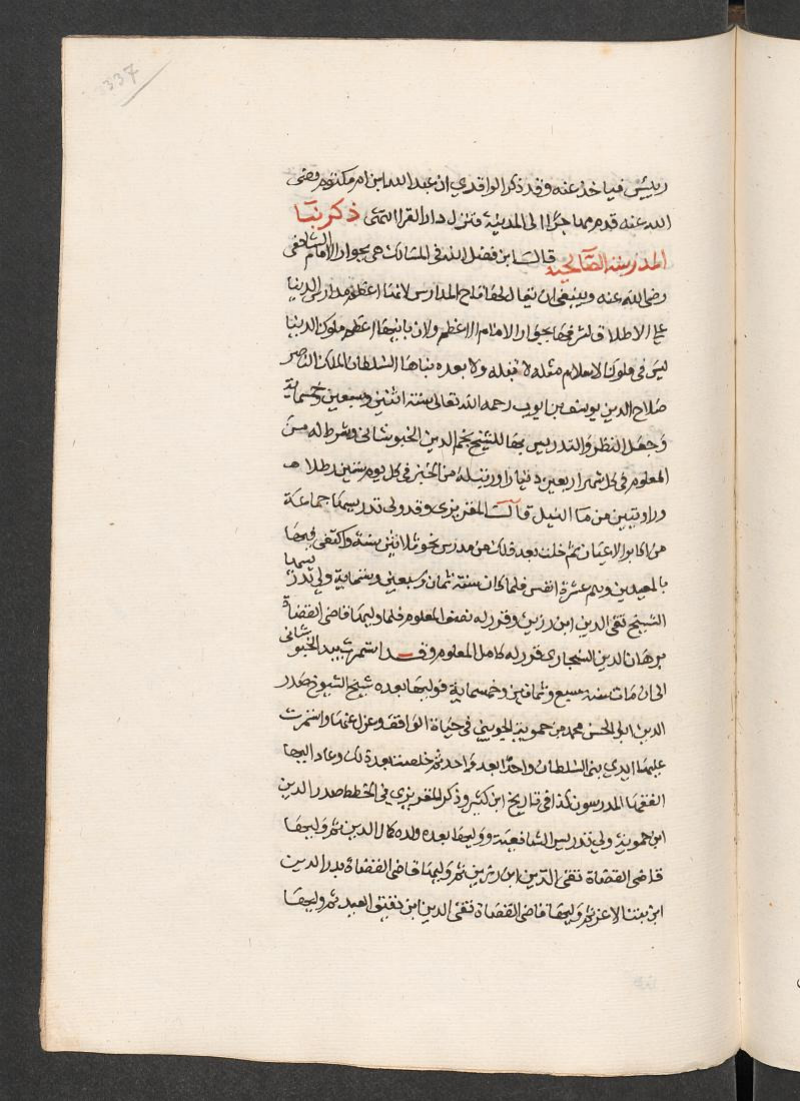 337
رييس فياخذ عنه وقد ذكر الواقدي ان عبد الله ابن ام مكتوم رضى
الله عنه قدم مهاجرا الى المدينة فنزل دار القرا انتهى ذكر بنا
المدرسة الصالحية قال ابن فضل الله فى المسالك هى بجوار الامام الشافعى
رضى الله عنه وينبغى ان يقال لها تاج المدارس لانها اعظم مدارس الدنيا
على الاطلاق لشرفها بجوار الامام الاعظم ولان بانيها اعظم ملوك الدنيا
ليس فى ملوك الاسلام مثله لا قبله ولا بعده بناها السلطان الملك الناصر
صلاح الدين يوسف بن ايوب رحمه الله تعالى سنة اثنتين وسبعين وخمسماية
وجعل النظر والتدريس بها للشيخ نجم الدين الخبوشانى وشرط له من
المعلوم فى كل شهر اربعين دينارا ورتب له من الخبز فى كل يوم ستين رطلا
وراويتين من ما النيل قال المقريزى وقد ولى تدريسها جماعة
من اكابر الاعيان ثم خلت بعد ذلك من مدرس نحو ثلاثين سنة واكتفى فيها
بالمعيدين وهم عشرة انفس فلما كان سنة ثمان وسبعين وستماية ولى تدريسها
الشيخ تقى الدين ابن رزين وقرر له نصف المعلوم فلما وليها قاضى القضاة
برهان الدين السنجارى قرر له كامل المعلوم وقد استمر بيد الخبوشانى
الى ان مات سنة سبع وثمانين وخمسماية فوليها بعده شيخ الشيوخ صدر
الدين ابو الحسن محمد من حموية الجوينى فى حياة الواقف وعزل عنها واستمرت
عليها ايدي بنى السلطان واحدا بعد واحد ثم خلصت بعد ذلك وعاد اليها
الفقها المدرسون كذا فى تاريخ ابن كثير وذكر المقريزي فى الخطط صدر الدين
ابن حموية ولي تدريس الشافعية ووليها بعده ولده كمال الدين ثم وليها
قاضى القضاة تقى الدين ابن رزين ثم وليها قاضى القضاة بدر الدين
ابن بنت الاعز ثم وليها قاضى القضاة تقى الدين ابن دقيق العيد ثم وليها